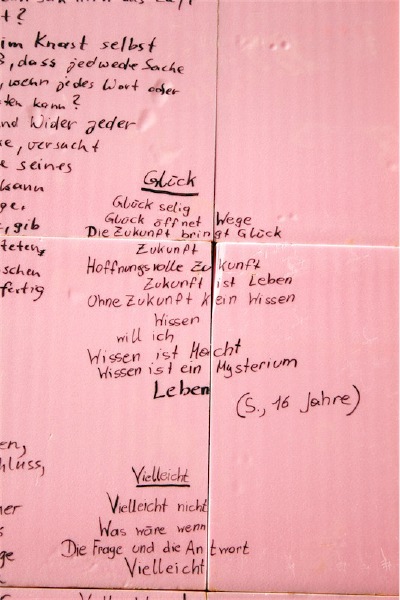 t?
im Knast selbst
, dass jedwede Sache
, wenn jedes Wort oder
ten kann?
nd Wider jeder
se, versucht
e seines
kann
ge.
, gib
teten,
schen
fertig
Glück
Glück selig
Glück öffnet Wege
Die Zukunft bringt Glück
Zukunft
Hoffnungsvolle Zukunft
Zukunft ist Leben
Ohne Zukunft kein Wissen
Wissen
will ich
Wissen ist Macht
Wissen ist ein Mysterium
Leben
(S., 16 Jahre)
en,
hluss,
ner
s
ge
Vielleicht
Vielleicht nicht
Was wäre wenn
Die Frage und die Antwort
Vielleicht